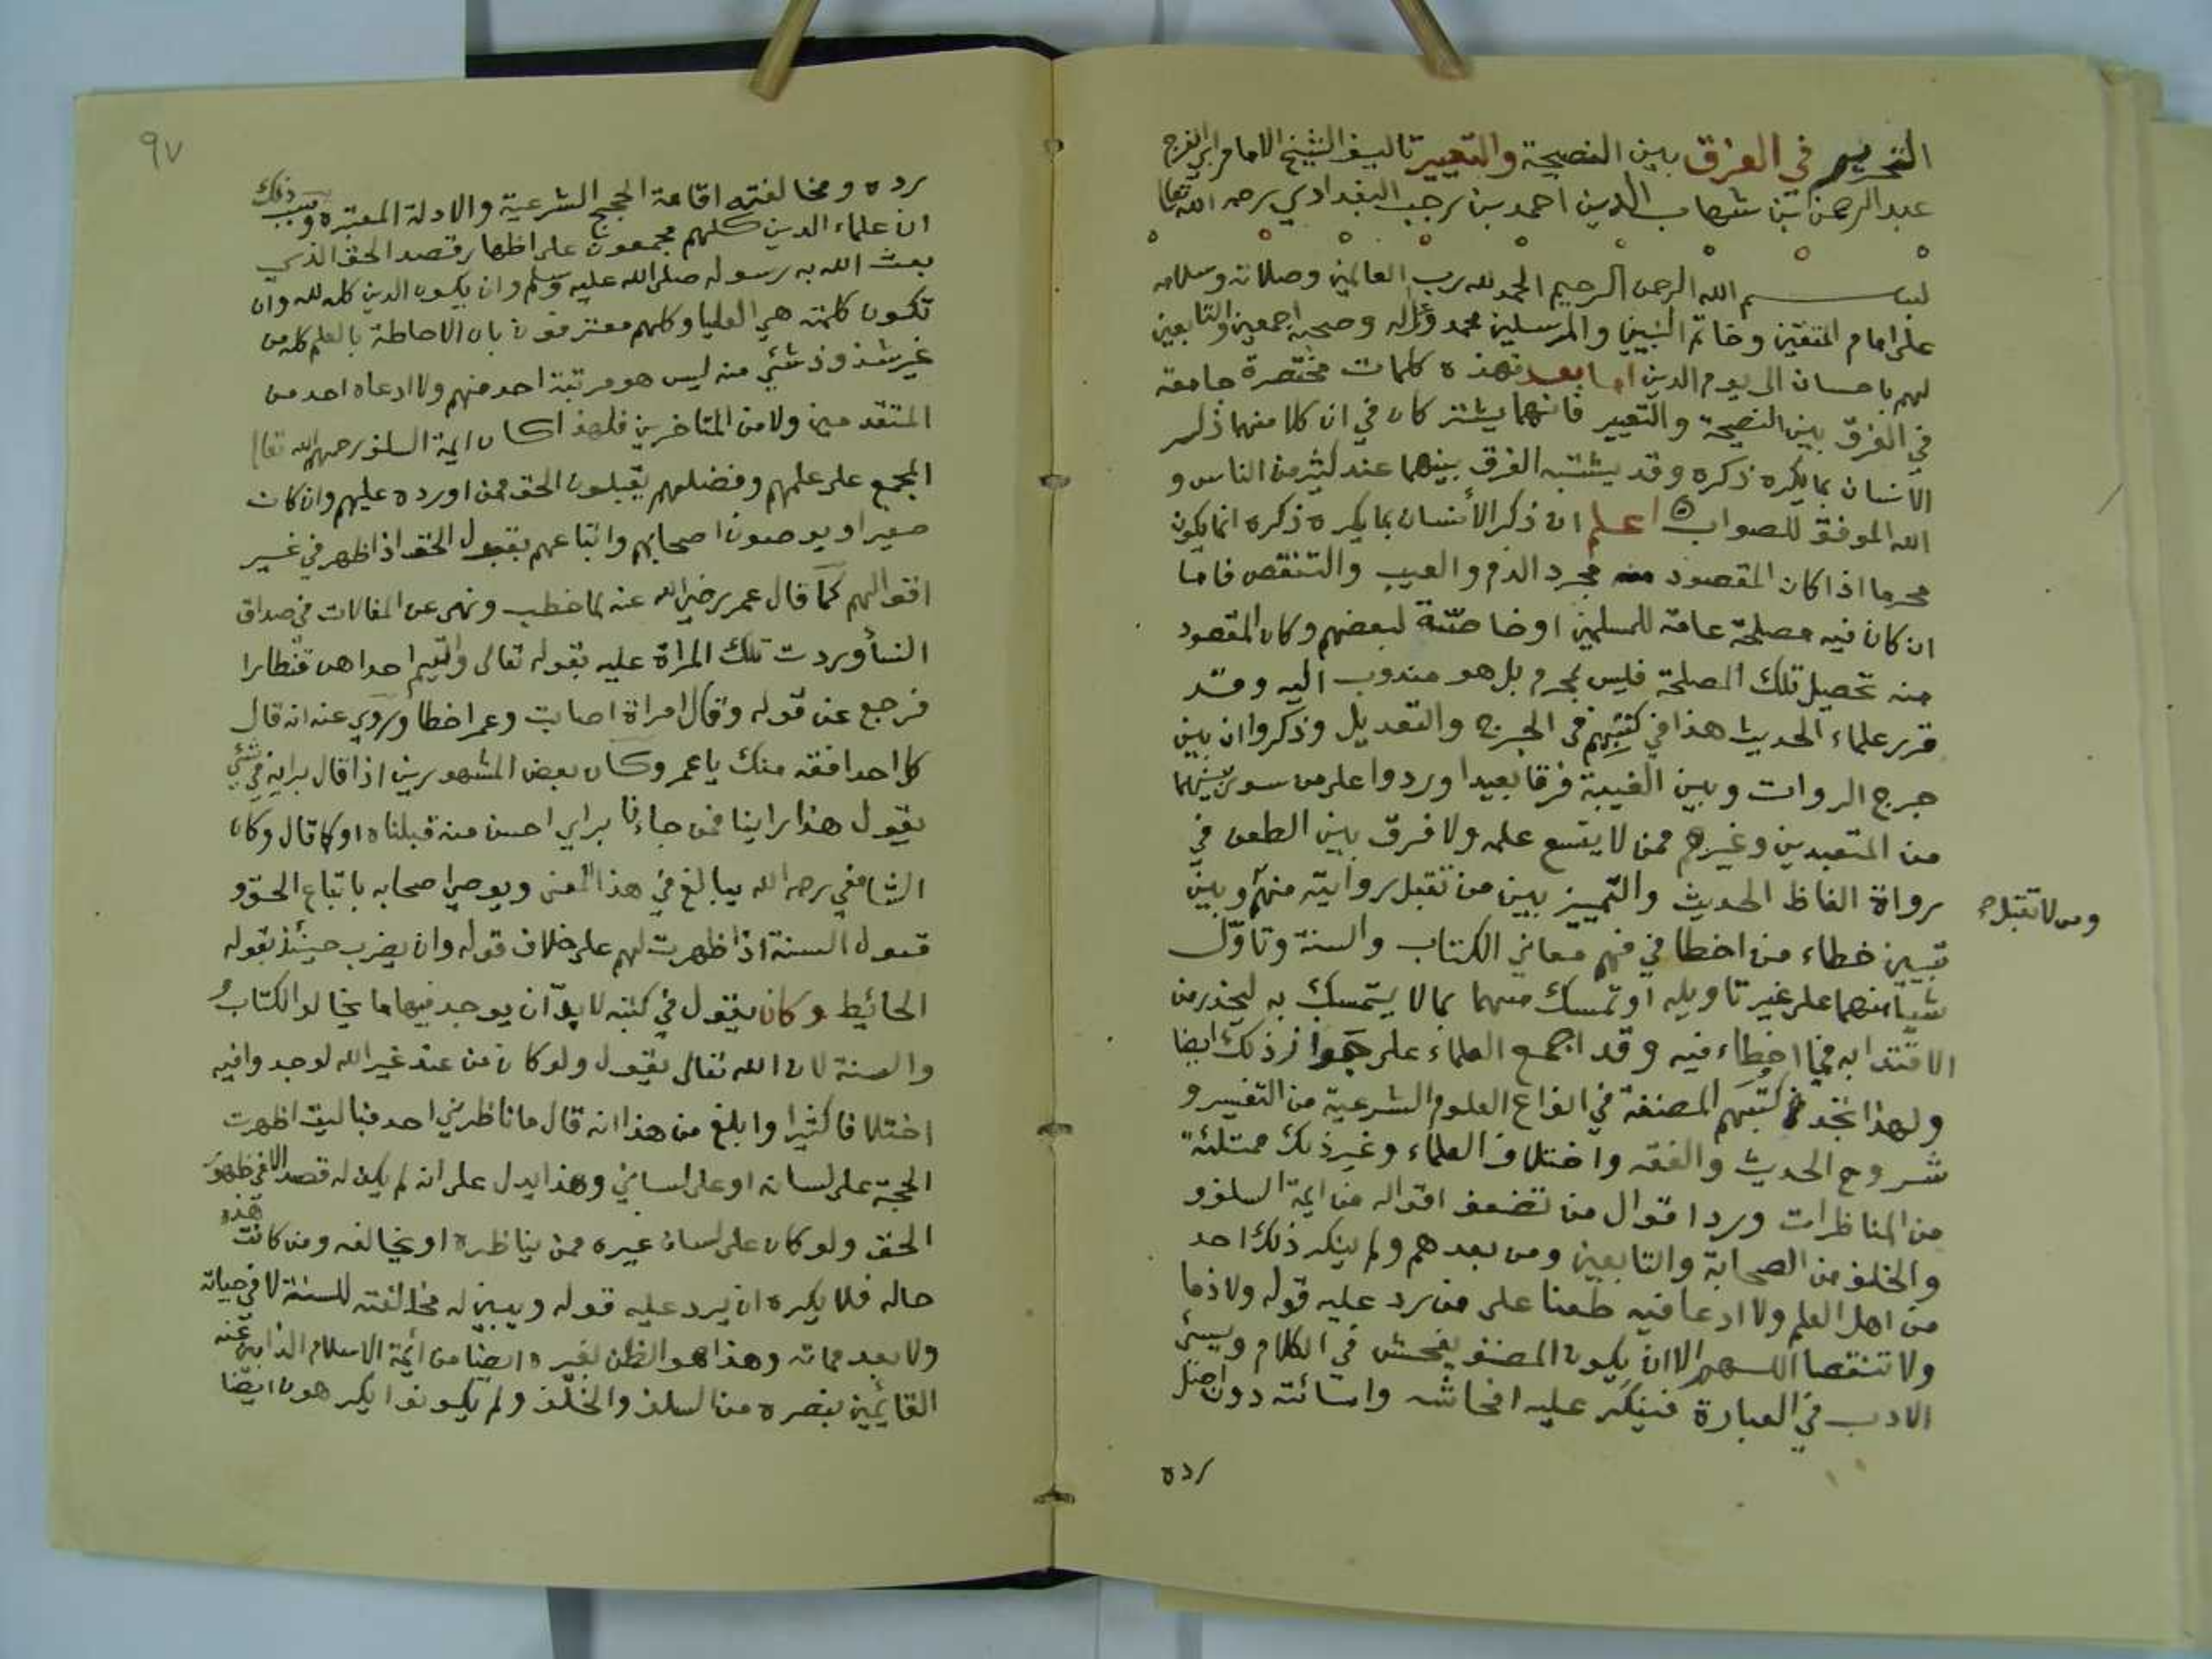 التحرير في الفرق بين النصيحة والتعيير تاليف الشيخ الامام ابي الفرج
عبد الرحمن بن شهاب الدين احمد بن رجب البغدادي رحمه الله تعالى
بسم الله الرحمن الرحيم الحمد لله رب العالمين وصلاته وسلامه
على امام المتقين وخاتم النبيين والمرسلين محمد وعلى اله وصحبه اجمعين والتابعين
لهم باحسان الى يوم الدين اما بعد فهذه كلمات مختصرة جامعة
في الفرق بين النصيحة والتعيير فانهما يشتركان في ان كلا منهما ذكر
الانسان بما يكره ذكره وقد يشتبه الفرق بينهما عند كثير من الناس و
الله الموفق للصواب اعلم ان ذكر الأنسان بما يكره ذكره انما يكون
محرما اذا كان المقصود منه مجرد الذم والعيب والتنقص فاما
ان كان فيه مصلحة عامة للمسلمين او خاصة لبعضهم وكان المقصود
منه تحصيل تلك المصلحة فليس بمحرم بل هو مندوب اليه وقد
قرر علماء الحديث هذا في كتبهم في الجرح والتعديل وذكروا ان بين
جرح الروات وبين الغيبة فرقا بعيدا وردوا على من سوى بينهما
من المتعبدين وغيرهم ممن لا يتسع علمه ولا فرق بين الطعن في
رواة الفاظ الحديث والتمييز بين من تقبل روايته منهم وبين
ومن لا تقبل
تبيين خطاء من اخطا في فهم معاني الكتاب والسنة وتاوّل
شيئا منهما على غير تاويله او تمسك منهما بما لا يتمسك به ليحذر من
الاقتدا به فيما اخطاء فيه وقد اجمع العلماء على جواز ذلك ايضا
ولهذا نجد في كتبهم المصنفة في انواع العلوم الشرعية من التفسير و
شروح الحديث والفقه واختلاف العلماء وغير ذلك ممتلئة
من المناظرات ورد اقوال من تضعف اقواله من ايمة السلف و
والخلف من الصحابة والتابعين ومن بعدهم ولم ينكر ذلك احد
من اهل العلم ولا ادعا فيه طعنا على من رد عليه قوله ولا ذما
ولا تنقصا اللهم الا ان يكون المصنف يفحش في الكلام ويسئ
الادب في العبارة فينكر عليه افحاشه واسائته دون اصل
رده
٩٧
رده ومخالفته اقامة الحجج الشرعية والادلة المعتبرة وسبب ذلك
ان علماء الدين كلهم مجمعون على اظهار قصد الحق الذي
بعث الله به رسوله صلى الله عليه وسلم وان يكون الدين كله لله وان
تكون كلمته هي العليا وكلهم معترفون بان الاحاطة بالعلم كله من
غير شذوذ شئي منه ليس هو مرتبة احد منهم ولا ادعاه احد من
المتقدمين ولا من المتاخرين فلهذا كان ايمة السلف رحمهم الله تعالى
المجمع على علمهم وفضلهم يقبلون الحق ممن اورده عليهم وان كان
صغيرا ويوصون اصحابهم واتباعهم بقبول الحق اذا ظهر في غير
اقوالهم كما قال عمر رضي الله عنه لما خطب ونهى عن المغالات في صداق
النسأ وردت تلك المراة عليه بقوله تعالى واتيتم احداهن قنطارا
فرجع عن قوله وقال امراة اصابت وعمر اخطا وروي عنه انه قال
كل احد افقه منك ياعمر وكان بعض المشهورين اذا قال برايه في شئي
يقول هذا راينا فمن جاءنا براي احسن منه قبلناه او كما قال وكان
الشافعي رحمه الله يبالغ في هذا المعنى ويوصي اصحابه باتباع الحق و
قبول السنة اذا ظهرت لهم على خلاف قوله وان يضرب حينئذ بقوله
الحائيط وكان يقول في كتبه لا بدّ ان يوجد فيها ما يخالف الكتاب
والسنة لان الله تعالى يقول ولو كان من عند غير الله لوجدوا فيه
اختلافا كثيرا وابلغ من هذا انه قال ما ناظرني احد فباليت اظهرت
الحجة على لسانه او على لساني وهذا يدل على انه لم يكن له قصد الا في ظهور
الحق ولو كان على لسان غيره ممن يناظره او يخالفه ومن كانت هذه
حاله فلا يكره ان يرد عليه قوله ويبين له مخالفته للسنة لا في حياته
ولا بعد مماته وهذا هو الظن بغيره ايضا من ائمة الاسلام الذابين عنه
القائمين بنصره من السلف والخلف ولم يكونوا يكرهون ايضا